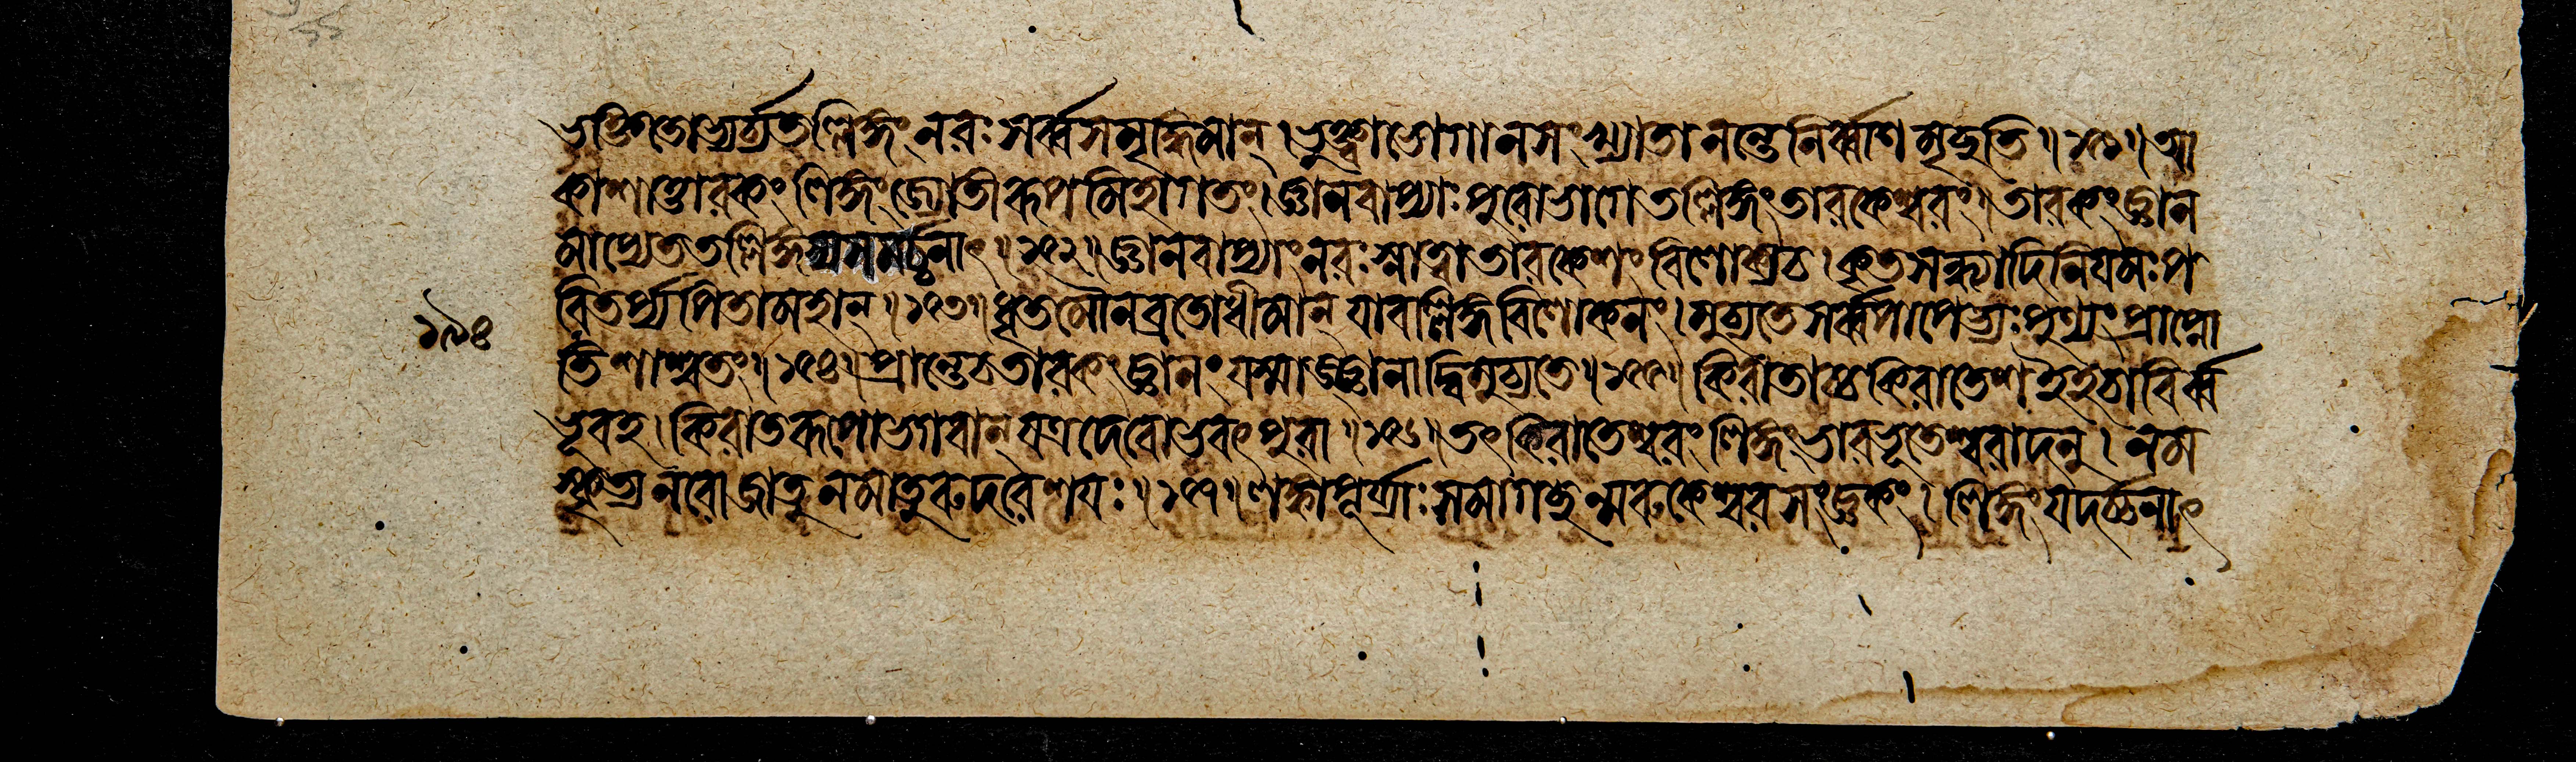 ভক্তিতোভ্যর্চ্চ্যতল্লিঙ্গং নরঃ সর্ব্বসমৃদ্ধিমান্। ভুক্ত্বাভোগানসংখ্যাতানন্তেনির্ব্বাণমৃচ্ছতি॥১৫১॥আ
কাশাত্তারকং লিঙ্গংজ্যোতীরূপমিহাগতং। জ্ঞানবাপ্যাঃ পুরোভাগে তল্লিঙ্গংতারকেশ্বরং॥তারকংজ্ঞান
মাপ্যেততল্লিঙ্গস্যসমর্চ্চনাৎ॥১৫২॥জ্ঞানবাপ্যাংনরঃ স্নাত্বাতারকেশং বিলোক্যচ।কৃতসন্ধ্যাদিনিযমঃপ
রিতর্প্যপিতামহান্॥১৫৩॥ধৃতমৌনব্রতোধীমান্ যাবল্লিঙ্গবিলোকনং।মুচ্যতেসর্ব্বপাপেভ্যঃপুণ্যং প্রাপ্নো
তিশাশ্বতং॥১৫৪॥প্রান্তেচতারকংজ্ঞানং যস্মাজ্জ্ঞানাদ্বিমুচ্যতে॥১৫৫॥কিরাতাখ্যকিরাতেশ
ভূবহ।কিরাতরূপোভগবান্ যত্রদেবোভবৎ পুরা॥১৫৬॥তংকিরাতেশ্বরংলিঙ্গংভারভূতেশ্বরাদনু।নম
স্কৃত্যনরোজাতুনমাতুরুদরেশযঃ॥১৫৭॥লঙ্কাপুর্য্যাঃসমাগচ্ছন্মরুকেশ্বরসংজ্ঞকং।লিঙ্গংযদর্চ্চনাৎ
১৯৪